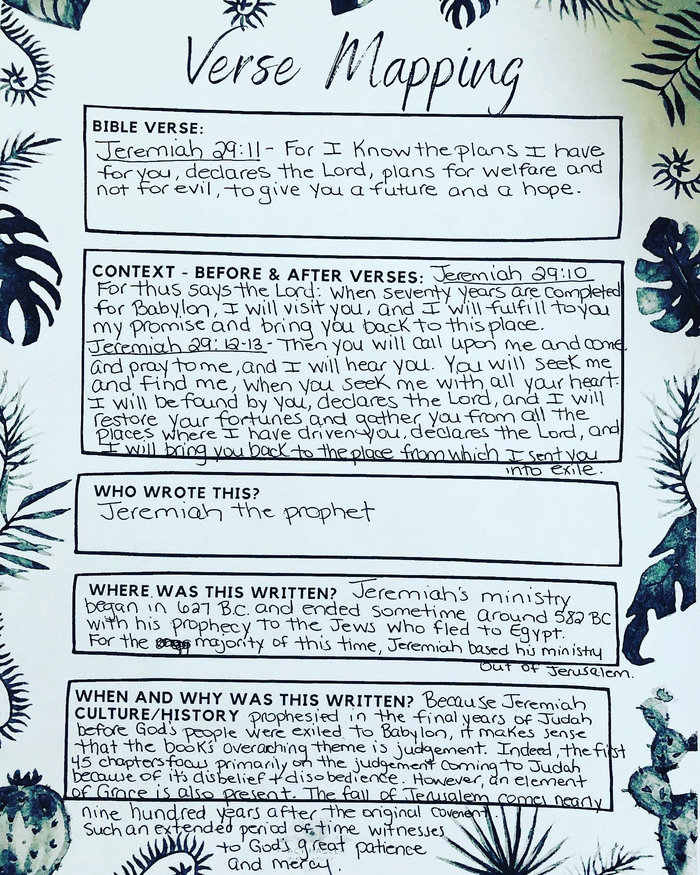 Verse Mapping
BIBLE VERSE:
Jeremiah 29:11 - For I Know the plans I have
for you, declares the Lord, plans for welfare and
not for evil, to give you a future and a hope.
CONTEXT - BEFORE & AFTER VERSES: Jeremiah 29:10
For thus says the Lord: When seventy years are completed
for Babylon, I will visit you, and I will fulfill to you
my promise and bring you back to this place.
Jeremiah 29:12-13 - Then you will call upon me and come
and pray to me, and I will hear you. You will seek me
and find me, when you seek me with all your heart.
I will be found by you, declares the Lord, and I will
restore your fortunes and gather you from all the
places where I have driven you, declares the Lord, and
I will bring you back to the place from which I sent you
into exile.
WHO WROTE THIS?
Jeremiah the prophet
WHERE WAS THIS WRITTEN? Jeremiah's ministry
began in 627 B.C. and ended sometime around 582 BC
with his prophecy to the Jews who fled to Egypt.
For the majority of this time, Jeremiah based his ministry
out of Jerusalem.
WHEN AND WHY WAS THIS WRITTEN? Because Jeremiah
CULTURE/HISTORY prophesied in the final years of Judah
before God's people were exiled to Babylon, it makes sense
that the books overaching theme is judgement. Indeed, the first
45 chapters focus primarily on the judgement coming to Judah
because of its disbelief + disobedience. However, an element
of Grace is also present. The fall of Jerusalem comes nearly
nine hundred years after the original covenent.
Such an extended period of time witnesses
to God's great patience
and mercy.